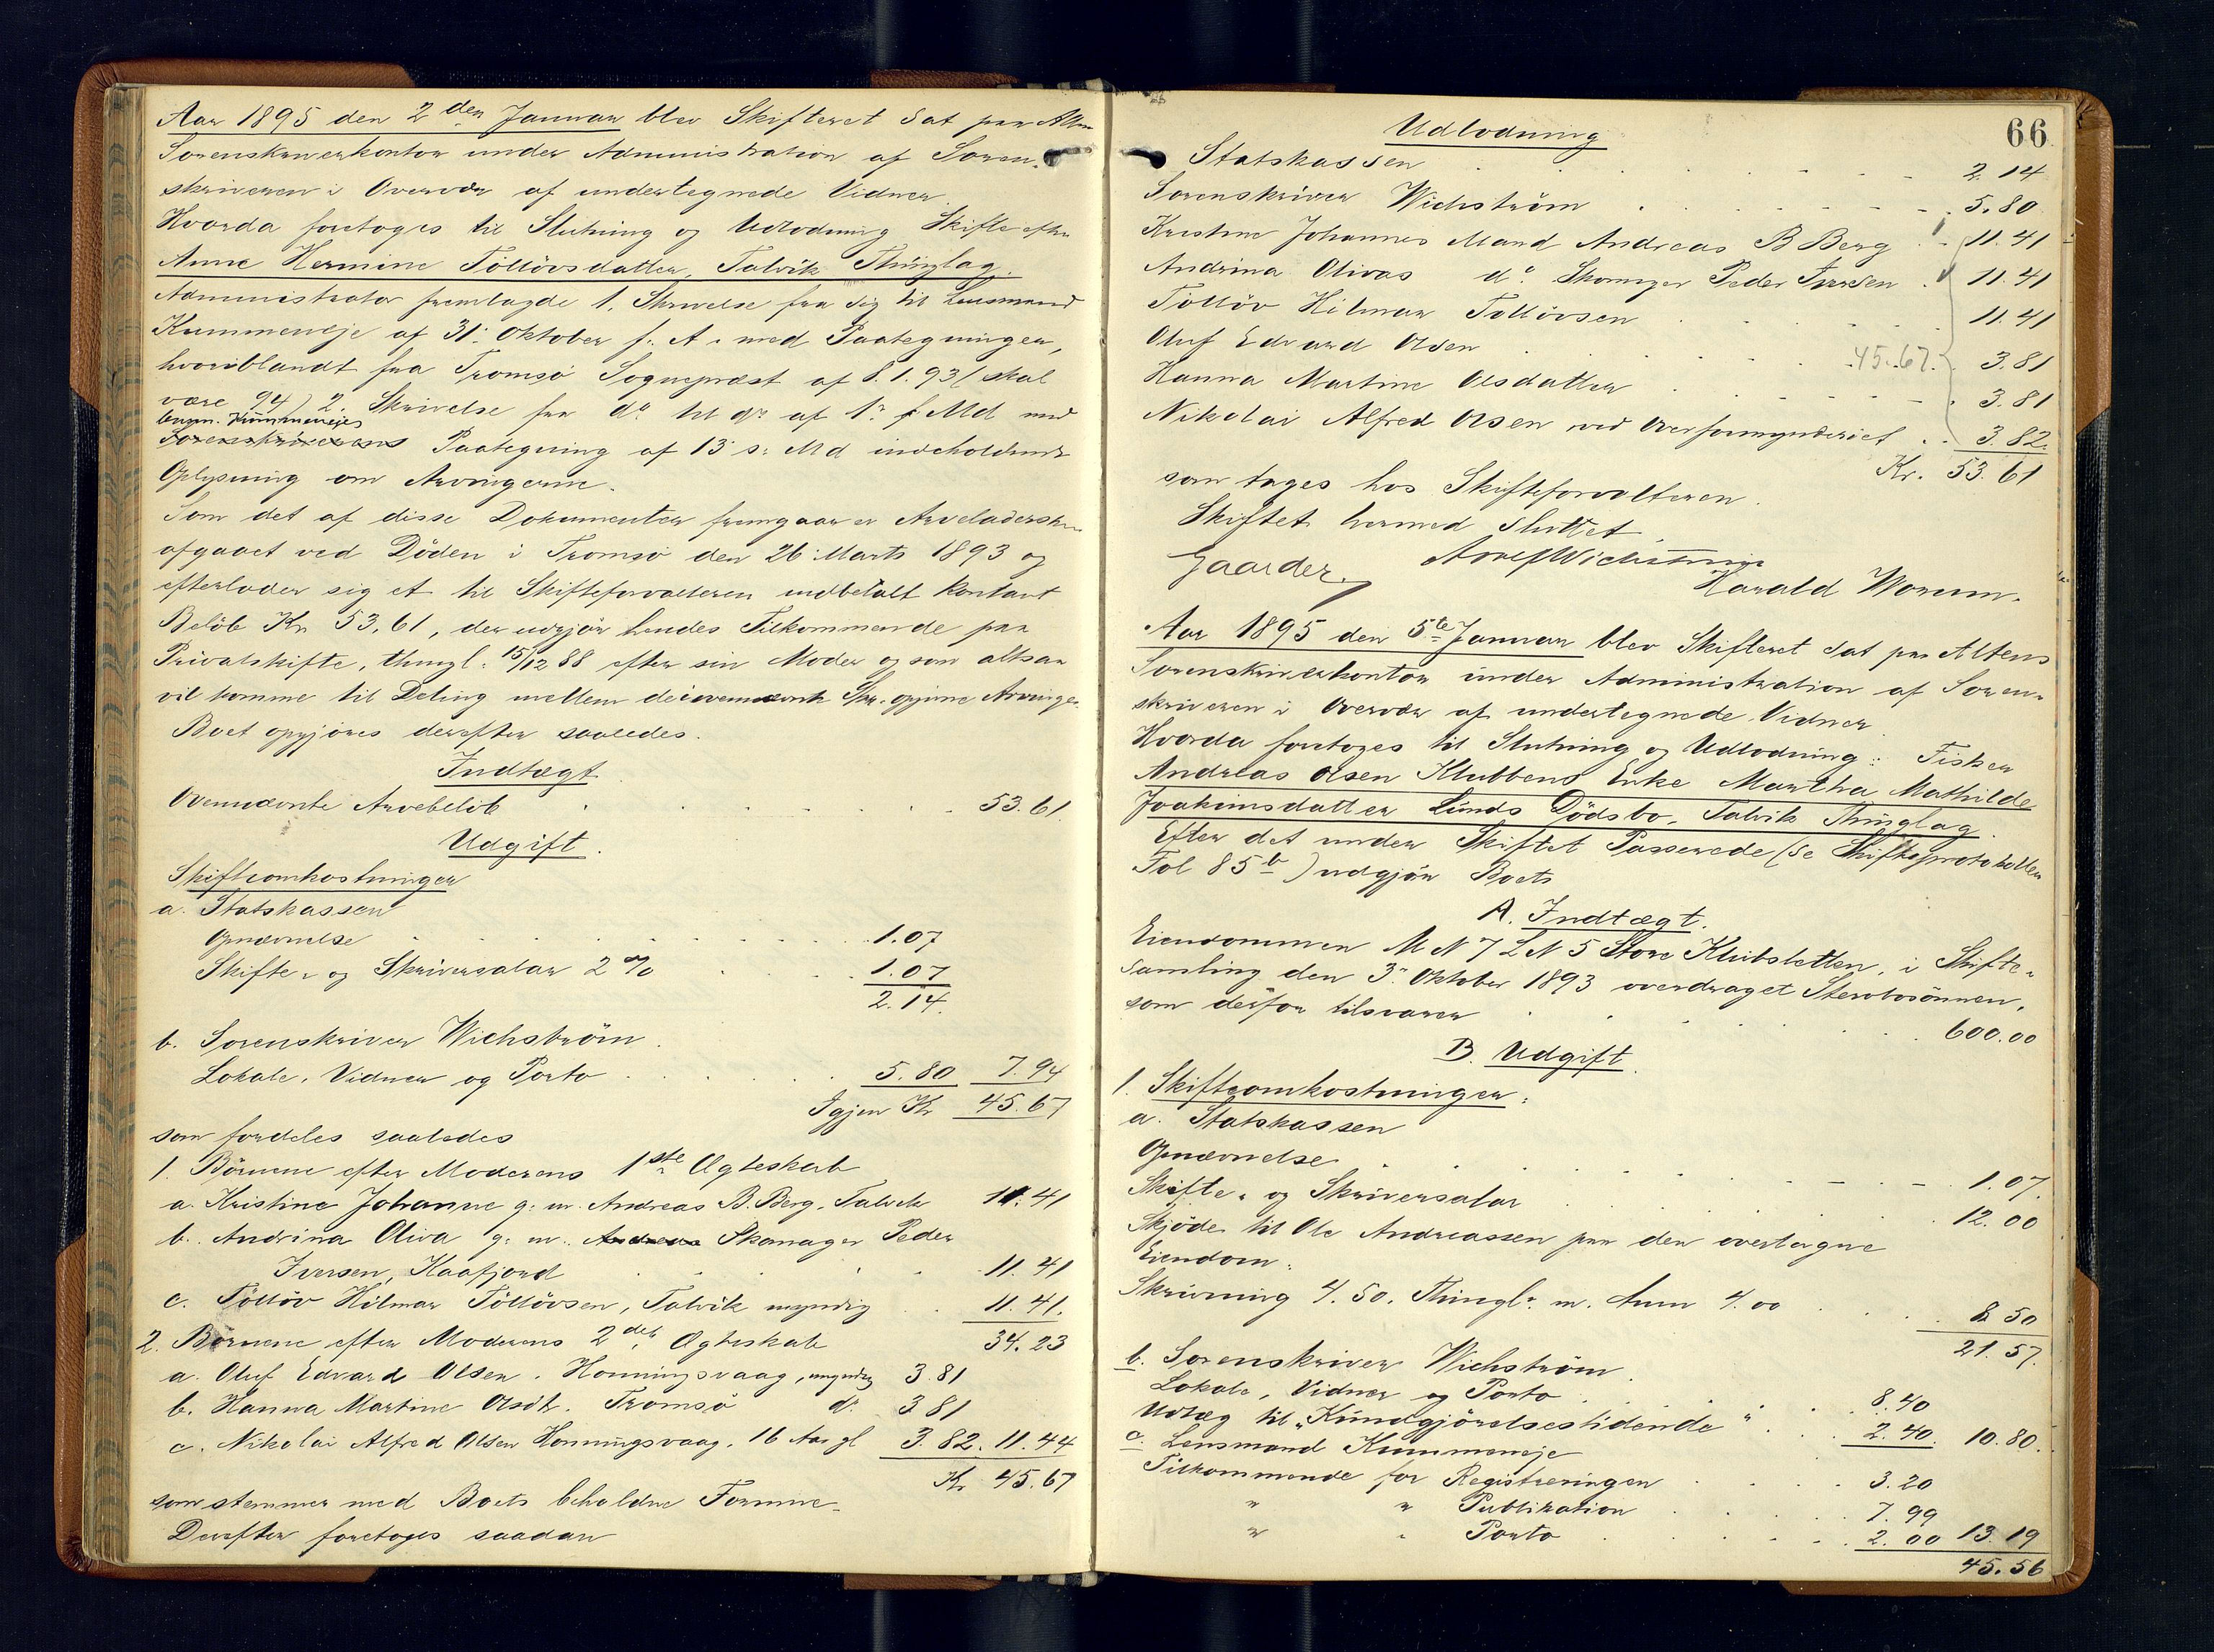 Aar 1895 den 2den Januar blev Skifteret sat paa Alten
Sorenskriverkontor under Administration af Soren-
skriveren i Overvær af undertegnede Vidner.
Hvorda foretoges til Slutning og Udlodning Skifte efter
Anne Hermine Töllövsdatter, Talvik Thinglag.
Administrator fremlagde 1. Skrivelse fra sig til Lensmand
Kummeneje af 31. Oktober f. A. med Paategninger,
hvoriblandt fra Tromsö Sognepræst af 8.1.93 (skal
være 94) 2. Skrivelse fra do til do af 1. f Md med
Lensm. Kummenejes
Sorenskriverens Paategning af 13 s. Md indeholdende
Oplysning om Arvingerne.
Som det af disse Dokumenter fremgaar er Arveladersken
afgaaet ved Döden i Tromsö den 26. Marts 1893 og
efterlader sig et til Skifteforvalteren indbetalt kontant
Belöb Kr. 53,61, der udgjör hendes Tilkommende paa
Privatskifte, thingl. 15/12 88 efter sin Moder og som altsaa
vil komme til Deling mellem de i ovennævnte Skr. opgivne Arvinger.
Boet opgjöres derefter saaledes.
Indtægt
Ovennævnte Arvebelöb 53.61.
Udgift.
Skifteomkostninger
a. Statskassen
Opnævnelse 1.07
Skifte- og Skriversalar 2% 1.07
2.14.
b. Sorenskriver Wichström.
Lokale, Vidner og Porto 5.80 7.94
Igjen Kr 45.67
som fordeles saaledes
1. Börnene efter Moderens 1ste Ægteskab
a. Kristine Johanne g. m. Andreas B. Berg, Talvik 11.41
b. Andrina Oliva g. m. Andreas Skomager Peder
Iversen, Kaafjord 11.41
c. Töllöv Hilmar Töllövsen, Talvik myndig 11.41.
34.23
2. Börnene efter Moderens 2det Ægteskab
a. Oluf Edvard Olsen, Honningsvaag, myndig 3.81
b. Hanna Martine Olsdt. Tromsö do 3.81
c. Nikolai Alfred Olsen Honningsvaag, 16 Aar gl 3.82. 11.44
Kr. 45.67
som stemmer med Boets beholdne Formue.
Derefter foretoges saadan
66
Udlodning
Statskassen 2.14
Sorenskriver Wichström 5.80
Kristine Johannes Mand Andreas B Berg 11.41
Andrina Olivas do Skomager Peder Iversen 11.41
Töllöv Hilmar Töllövsen 11.41
Oluf Edvard Olsen 45.67. 3.81
Hanna Martine Olsdatter 3.81
Nikolai Alfred Olsen ved Overformynderiet 3.82.
Kr. 53.61
som tages hos Skifteforvalteren.
Skiftet hermed sluttet.
Wichström
Gaarder. Harald Worum.
Aar 1895 den 5te Januar blev Skifteret sat paa Altens
Sorenskriverkontor under Administration af Soren-
skriveren i Overvær af undertegnede Vidner.
Hvorda foretoges til Slutning og Udlodning: Fisker
Andreas Olsen Klubbens Enke Martha Mathilde
Joakimsdatter Lunds Dödsbo, Talvik Thinglag.
Efter det under Skiftet Passerede (se Skifteprotokollen
Fol 85b) udgjör Boets
A. Indtægt.
Eiendommen M N 7 L N 5 Store Klubsletten, i Skifte-
samling den 3. Oktober 1893 overdraget Stervbosönnen,
som derfor tilsvarer 600.00
B. Udgift.
1. Skifteomkostninger:
a. Statskassen
Opnævnelse 1.07.
Skifte- og Skriversalar 12.00
Skjöde til Ole Andreassen paa den overtagne
Eiendom:
Skrivning 4.50, Thingl. m. Anm 4.00 8 50
21.57.
b. Sorenskriver Wichström.
Lokale, Vidner og Porto 8.40
Udlæg til "Kundgjörelsestidende" 2.40. 10.80.
c. Lensmand Kummeneje
Tilkommende for Registreringen 3.20
" " Publikation 7.99
" " Porto 2.00 13.19
45.56